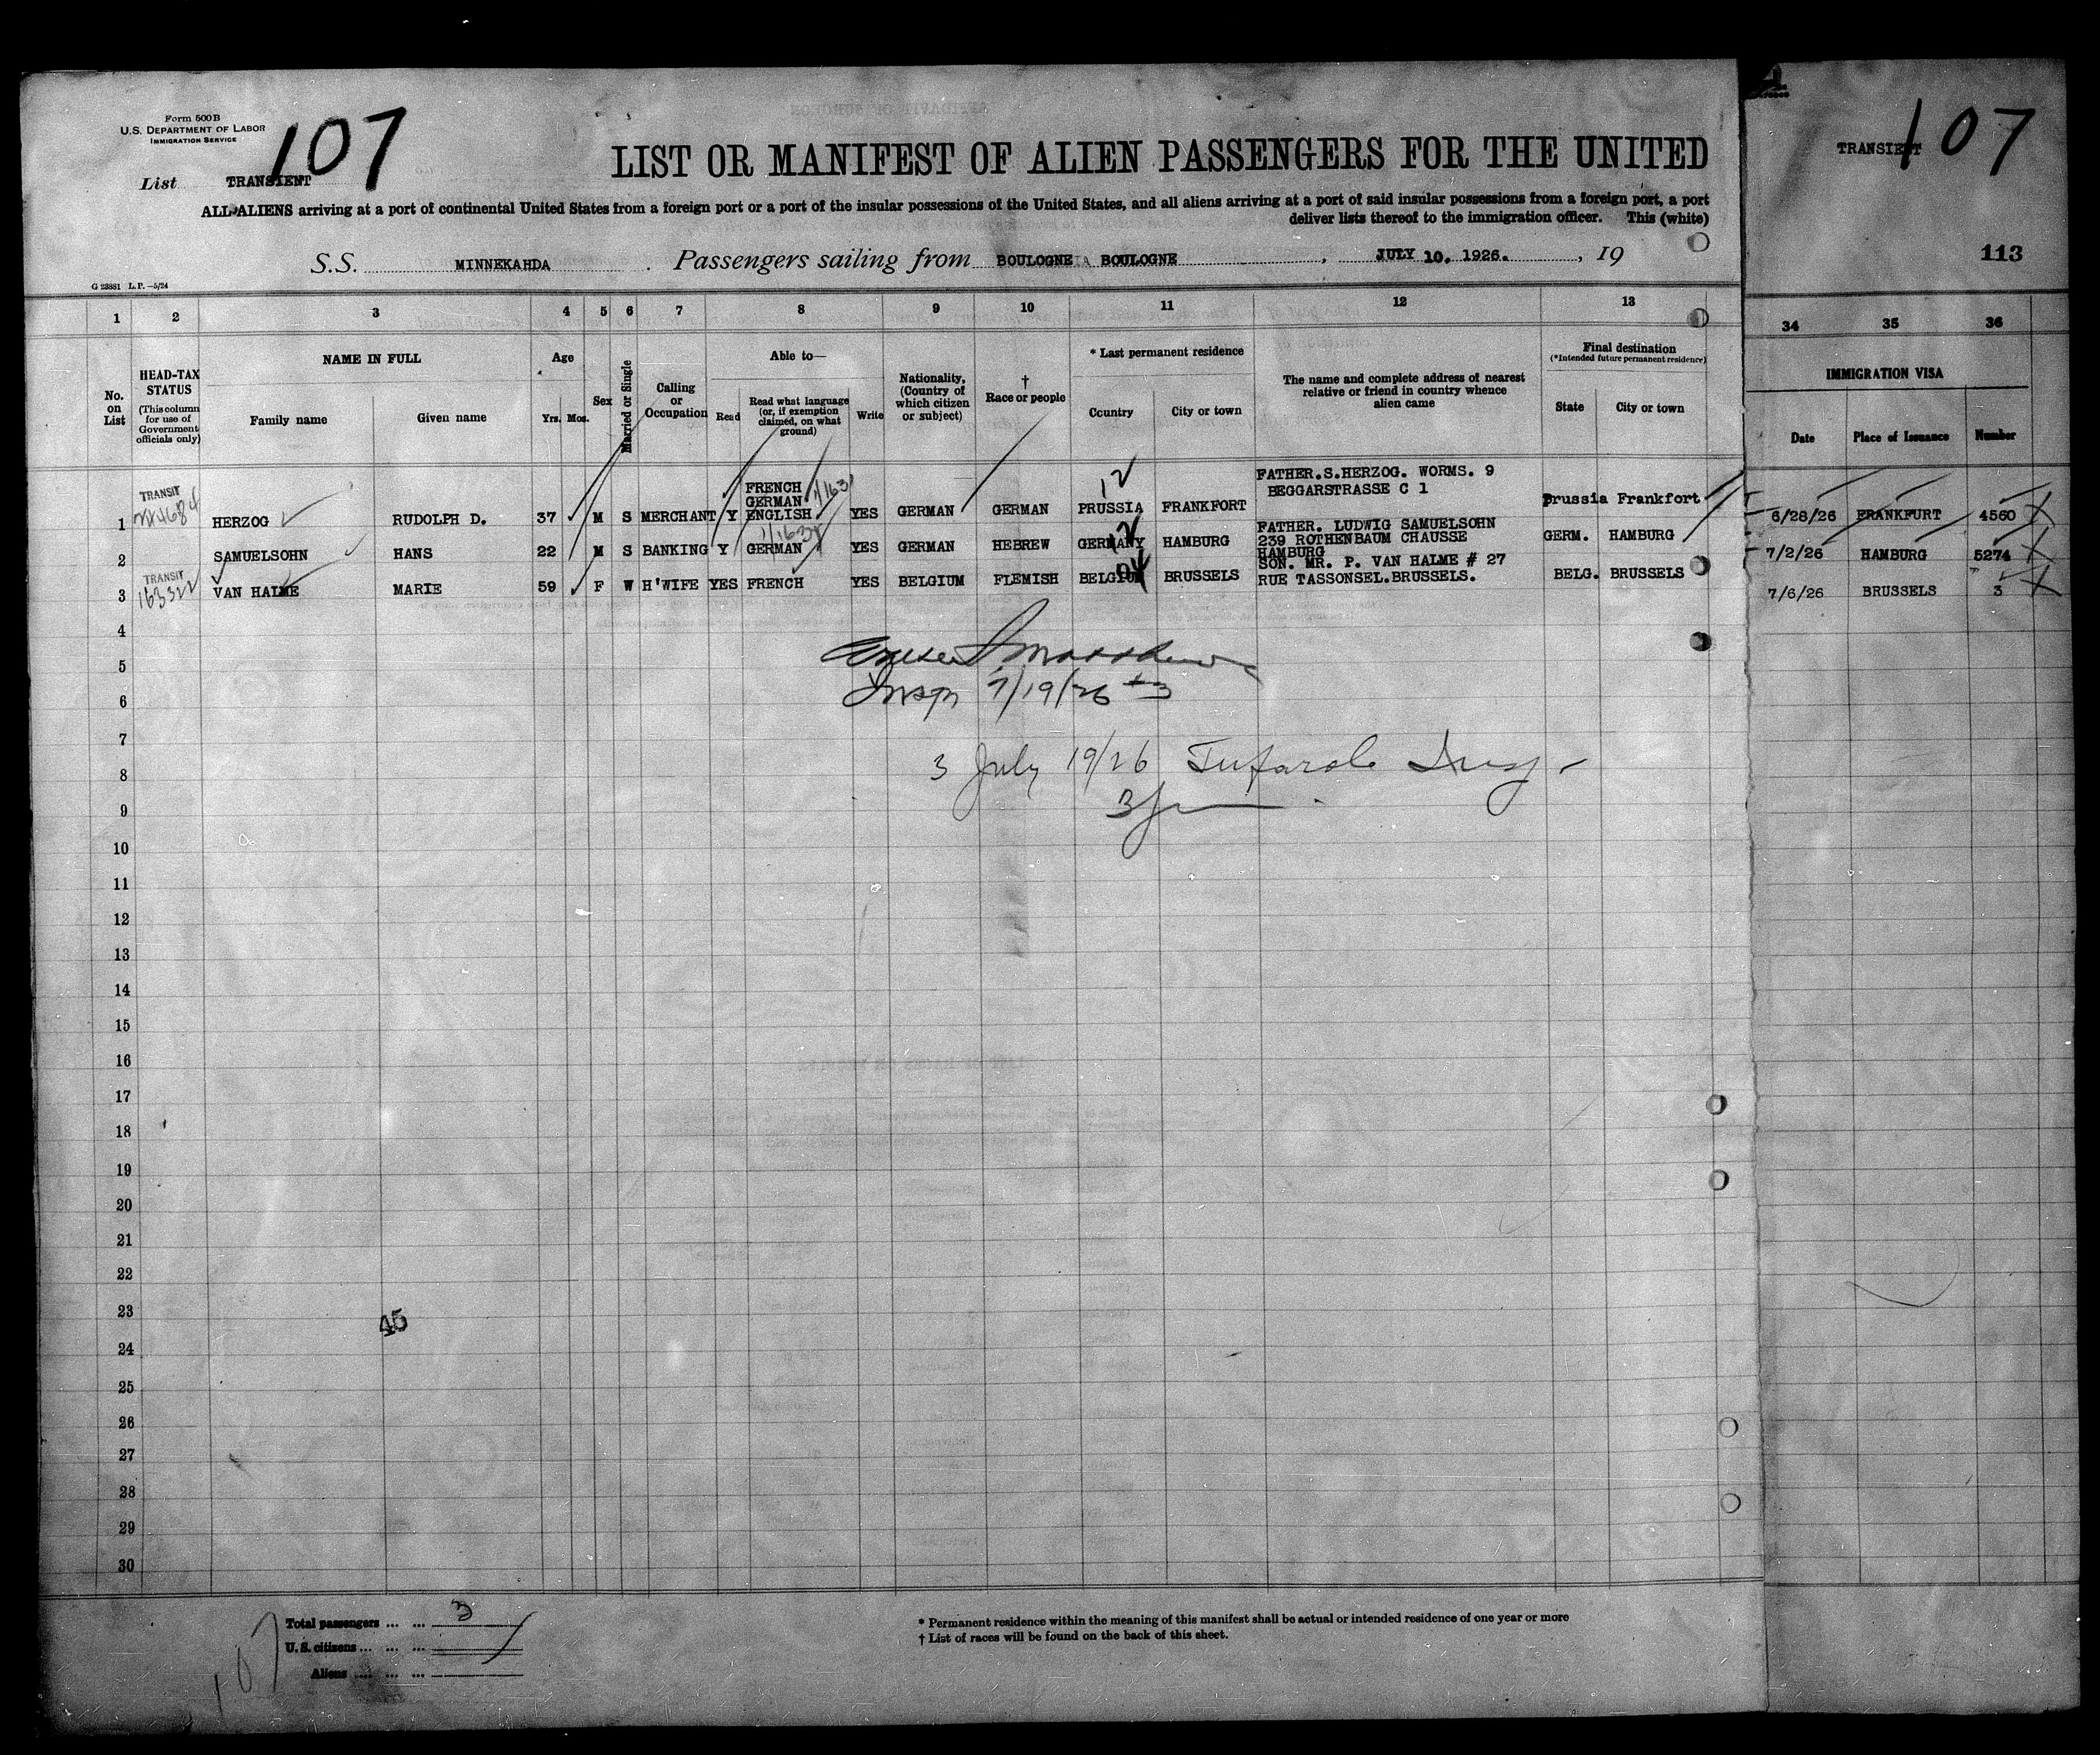 Form 500B
U.S. DEPARTMENT OF LABOR
IMMIGRATION SERVICE
107
List TRANSIENT
LIST OR MANIFEST OF ALIEN PASSENGERS FOR THE UNITED
ALL ALIENS arriving at a port of continental United States from a foreign port or a port of the insular possessions of the United States, and all aliens arriving at a port of said insular possessions from a foreign port, a port
deliver lists thereof to the immigration officer. This (white)
S.S. MINNEKAHDA. Passengers sailing from BOULOGNE BOULOGNE, JULY 10. 1926., 19
G 23881 L.P.—5/24
TRANSIENT 107
113
1 2 3 4 5 6 7 8 9 10 11 12 13 34 35 36
No. on List
HEAD-TAX STATUS
(This column for use of Government officials only)
NAME IN FULL
Family name Given name
Age
Yrs. Mos.
Sex
Married or Single
Calling or Occupation
Able to—
Read Read what language (or, if exemption claimed, on what ground) Write
Nationality, (Country of which citizen or subject)
† Race or people
* Last permanent residence
Country City or town
The name and complete address of nearest relative or friend in country whence alien came
Final destination
(*Intended future permanent residence)
State City or town
IMMIGRATION VISA
Date Place of Issuance Number
TRANSIT
FRENCH
GERMAN
12
FATHER.S.HERZOG. WORMS. 9
BEGGARSTRASSE C 1
1 HERZOG RUDOLPH D. 37 M S MERCHANT Y ENGLISH YES GERMAN GERMAN PRUSSIA FRANKFORT Prussia Frankfort 6/28/26 FRANKFURT 4560
FATHER. LUDWIG SAMUELSOHN
239 ROTHENBAUM CHAUSSE
HAMBURG
2 SAMUELSOHN HANS 22 M S BANKING Y GERMAN YES GERMAN HEBREW GERMANY HAMBURG GERM. HAMBURG 7/2/26 HAMBURG 5274
TRANSIT
163322
SON. MR. P. VAN HALME # 27
RUE TASSONSEL.BRUSSELS.
3 VAN HALME MARIE 59 F W H'WIFE YES FRENCH YES BELGIUM FLEMISH BELGIUM BRUSSELS BELG. BRUSSELS 7/6/26 BRUSSELS 3
4
5
Insp 7/19/26
6
7
3 July 19/26 Insp
8
9
10
11
12
13
14
15
16
17
18
19
20
21
22
23
45
24
25
26
27
28
29
30
107
Total passengers ... ... 3
U.S. citizens ... ... ...
Aliens .... ... ...
* Permanent residence within the meaning of this manifest shall be actual or intended residence of one year or more
† List of races will be found on the back of this sheet.